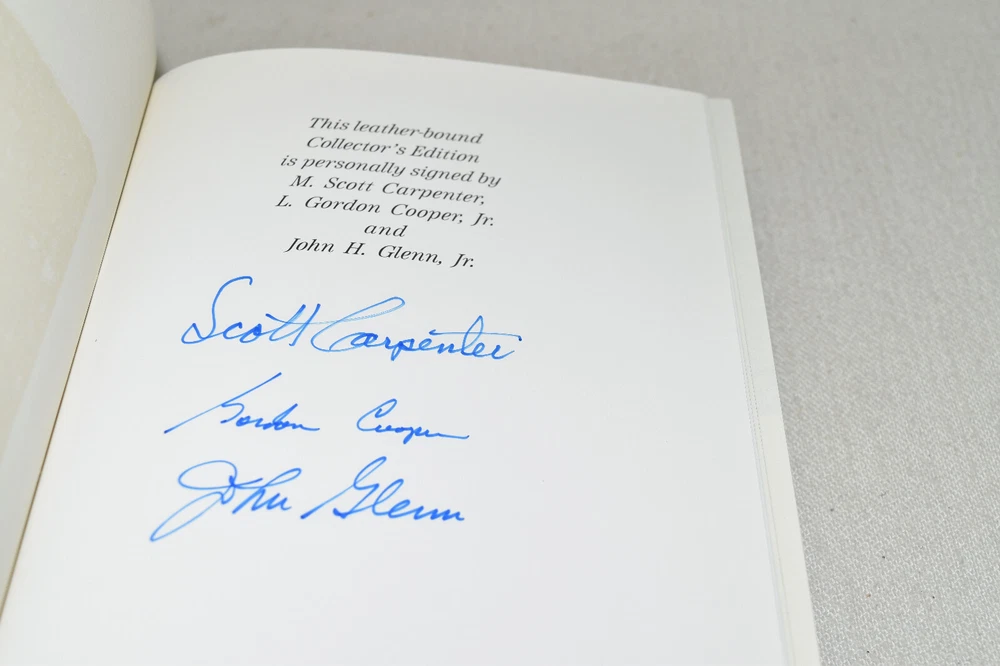 This leather-bound
Collector's Edition
is personally signed by
M. Scott Carpenter,
L. Gordon Cooper, Jr.
and
John H. Glenn, Jr.
Scott Carpenter
Gordon Cooper
John Glenn